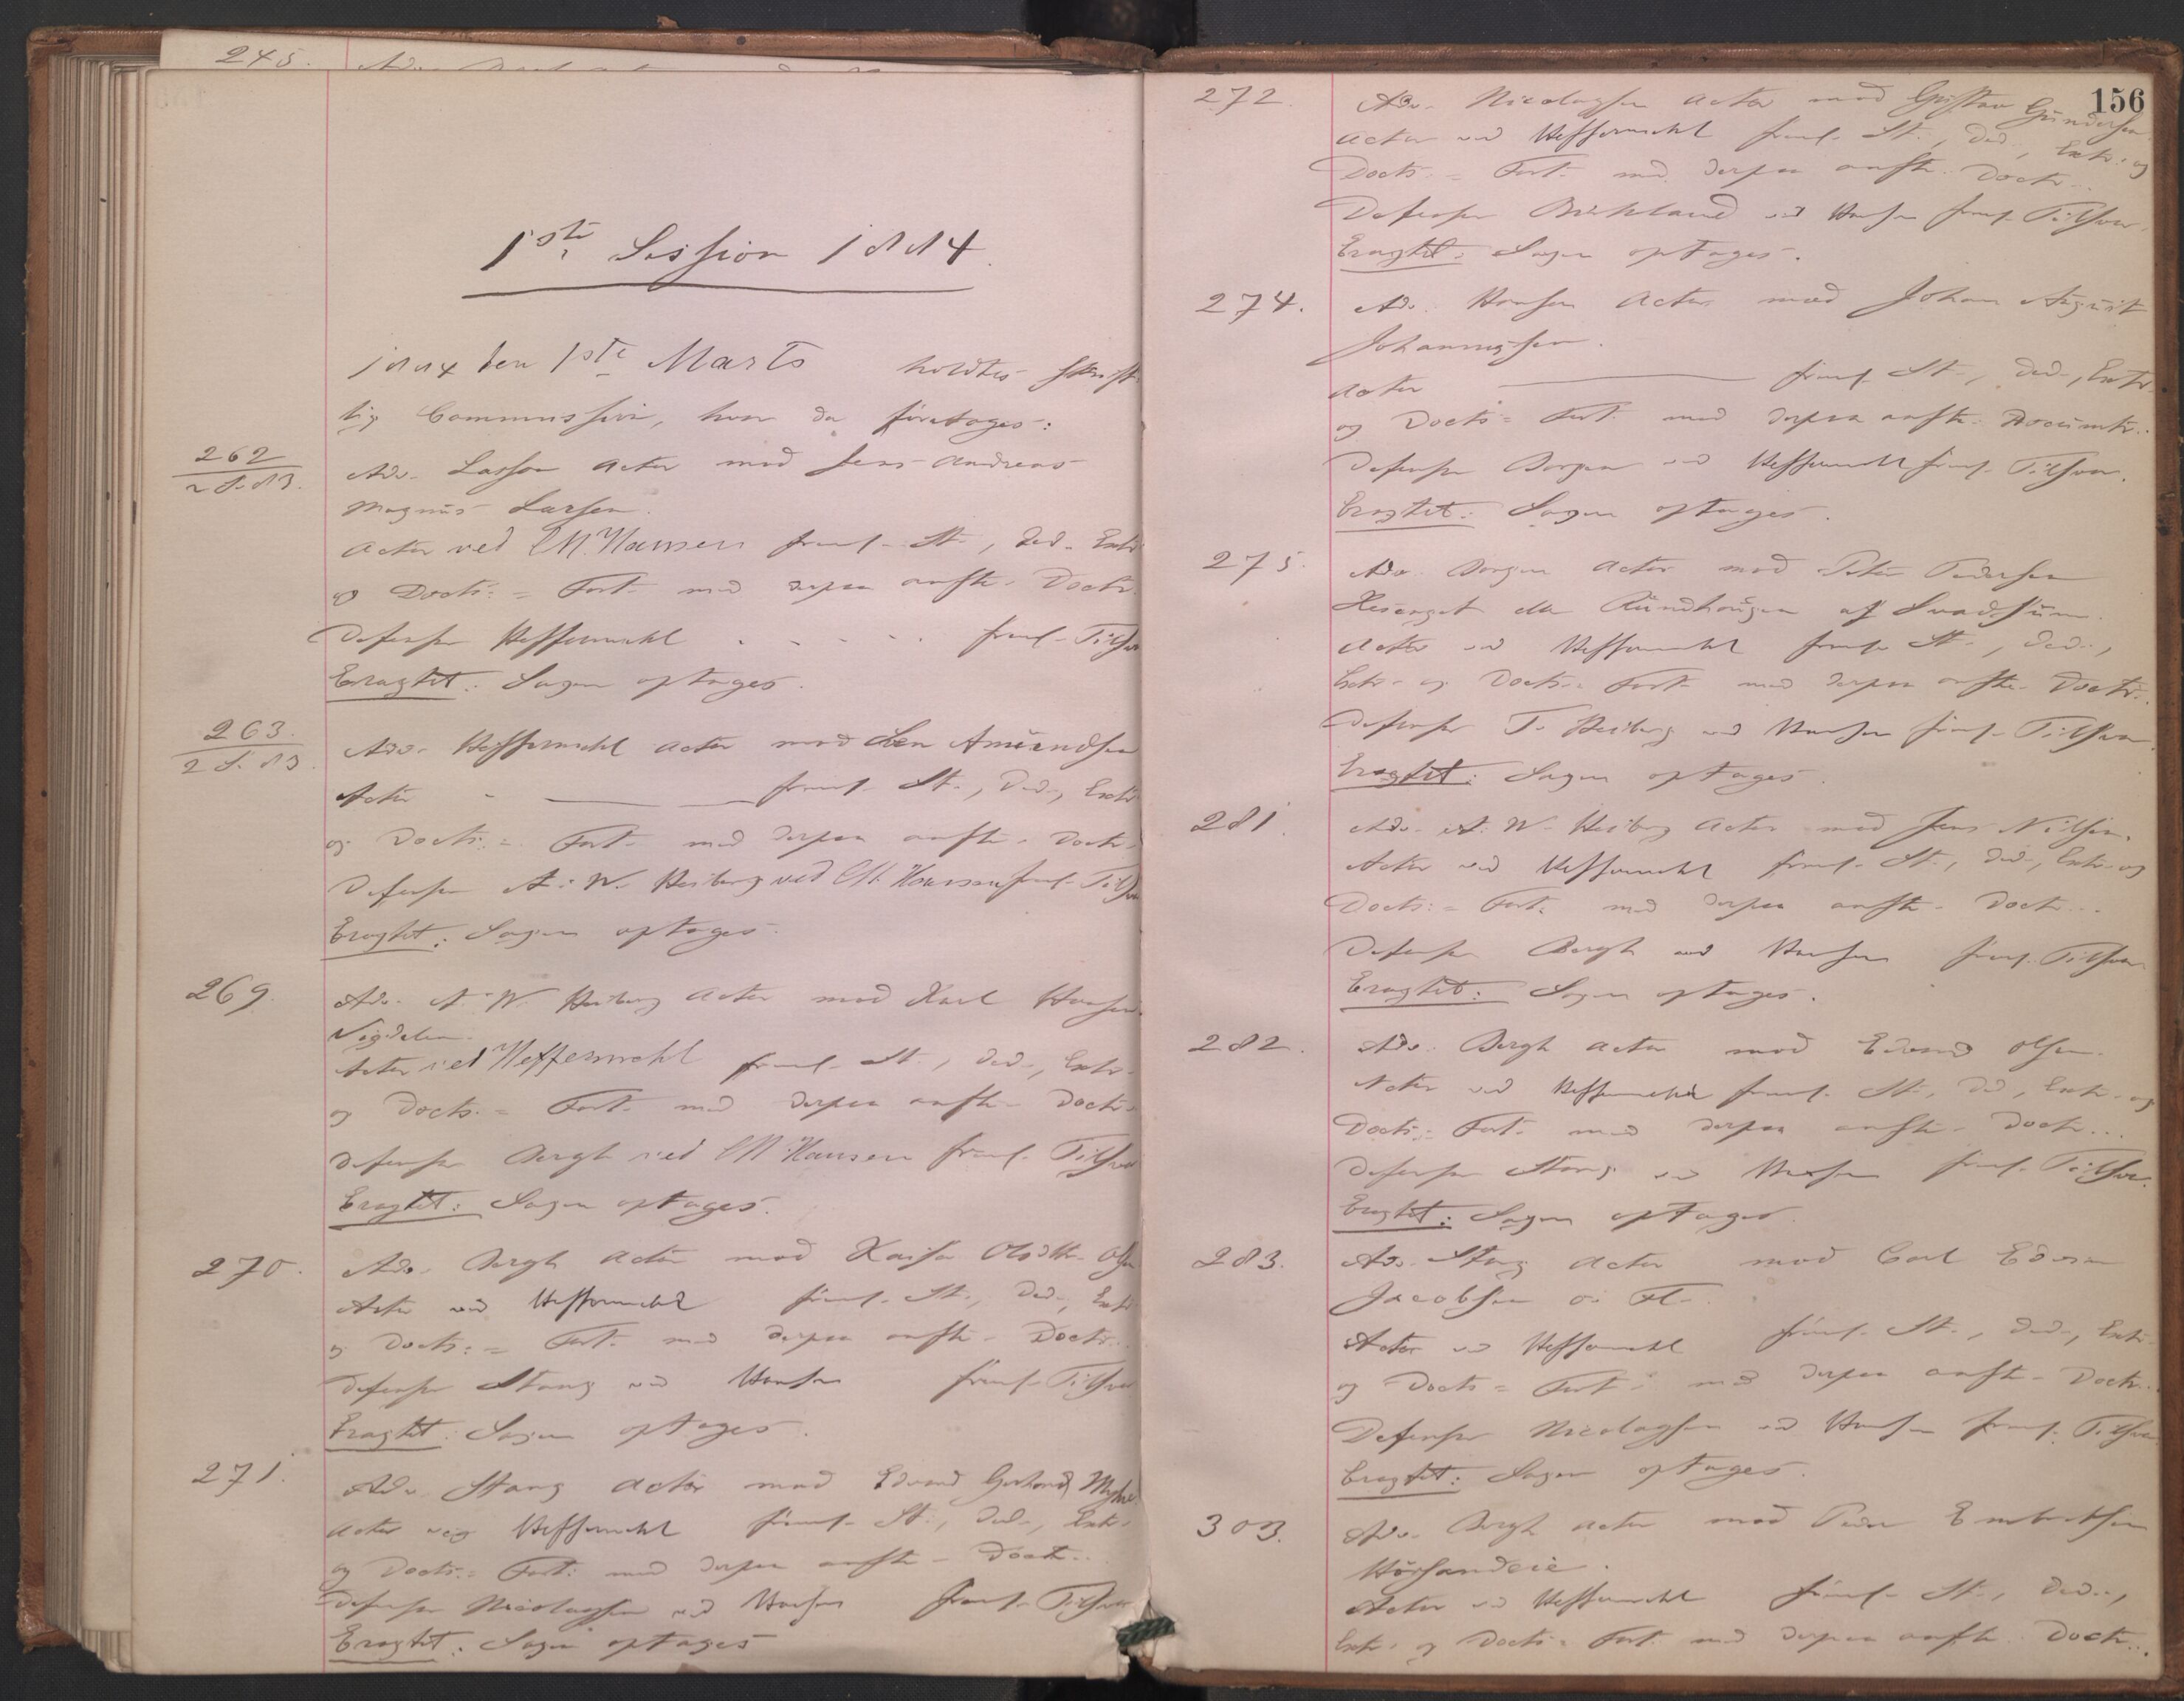 245.
1ste Session 1884.
1884 den 1ste Marts holdtes skrift-
lig Commission, hvor da foretoges:
262
2 S. 83.
Adv. Lasson Actor mod Jens Andreas
Magnus Larsen.
Actor ved CM. Hansen freml. St., Ded., Extr.
og Docts: = Fort. med derpaa anfte. Doctr.
Defensor Hesselberg freml. Tilsvar
Eragtet: Sagen optages.
263.
2 S. 83.
Adv. Actor mod Amundsen
Actor freml. St., Ded., Extr.
og Docts: = Fort. med derpaa anfte. Doctr.
Defensor A. W. Heiberg ved CM. Hansen freml. Tilsvar
Eragtet: Sagen optages.
269.
Adv. A. W. Heiberg Actor mod Karl Hansen
Actor ved freml. St., Ded., Extr.
og Docts. = Fort. med derpaa anfte. Doctr.
Defensor Bergh ved CM. Hansen freml. Tilsvar
Eragtet: Sagen optages.
270.
Adv. Bergh Actor mod Kaisa Olsdtr. Olsen
Actor ved freml. St., Ded., Extr.
og Docts: = Fort. med derpaa anfte. Doctr.
Defensor Stang ved Hansen freml. Tilsvar
Eragtet: Sagen optages.
271.
Adv. Stang Actor mod Edvard Gerhard
Actor ved freml. St., Ded., Extr.
og Docts: = Fort. med derpaa anfte. Doctr.
Defensor Nicolaysen ved Hansen freml. Tilsvar
Eragtet: Sagen optages
156
272.
Adv. Nicolaysen Actor mod Gustav Gundersen
Actor ved freml. St., Ded., Extr. og
Docts. = Fort. med derpaa anfte. Doctr.
Defensor ved Hansen freml. Tilsvar.
Eragtet: Sagen optages.
274.
Adv. Hansen Actor mod Johan August
Johannessen.
Actor freml. St., Ded., Extr.
og Docts = Fort. med derpaa anfte. Documtr.
Defensor ved freml. Tilsvar.
Eragtet: Sagen optages.
275.
Adv. Actor mod Peter Pedersen
eller af
Actor ved freml. St., Ded.,
Extr. og Docts. = Fort. med derpaa anfte. Doctr.
Defensor T. Heiberg ved Hansen freml. Tilsvar.
Eragtet: Sagen optages.
281.
Adv. A. W. Heiberg Actor mod Jens Nilsen.
Actor ved freml. St., Ded., Extr. og
Docts: = Fort. med derpaa anfte. Doctr.
Defensor Bergh ved Hansen freml. Tilsvar
Eragtet: Sagen optages.
282.
Adv. Bergh Actor mod Edvard Olsen.
Actor ved freml. St., Ded., Extr. og
Docts: = Fort. med derpaa anfte. Doctr.
Defensor Stang ved Hansen freml. Tilsvar.
Eragtet: Sagen optages.
283.
Adv. Stang Actor mod Carl Edvin
Jacobsen o. Fl.
Actor ved freml. St., Ded., Extr.
og Docts = Fort. med derpaa anfte. Doctr.
Defensor Nicolaysen ved Hansen freml. Tilsvar
Eragtet: Sagen optages.
303.
Adv. Bergh Actor mod Peder Engebretsen
Actor ved freml. St., Ded.,
Extr. og Docts = Fort. med derpaa anfte. Doctr.